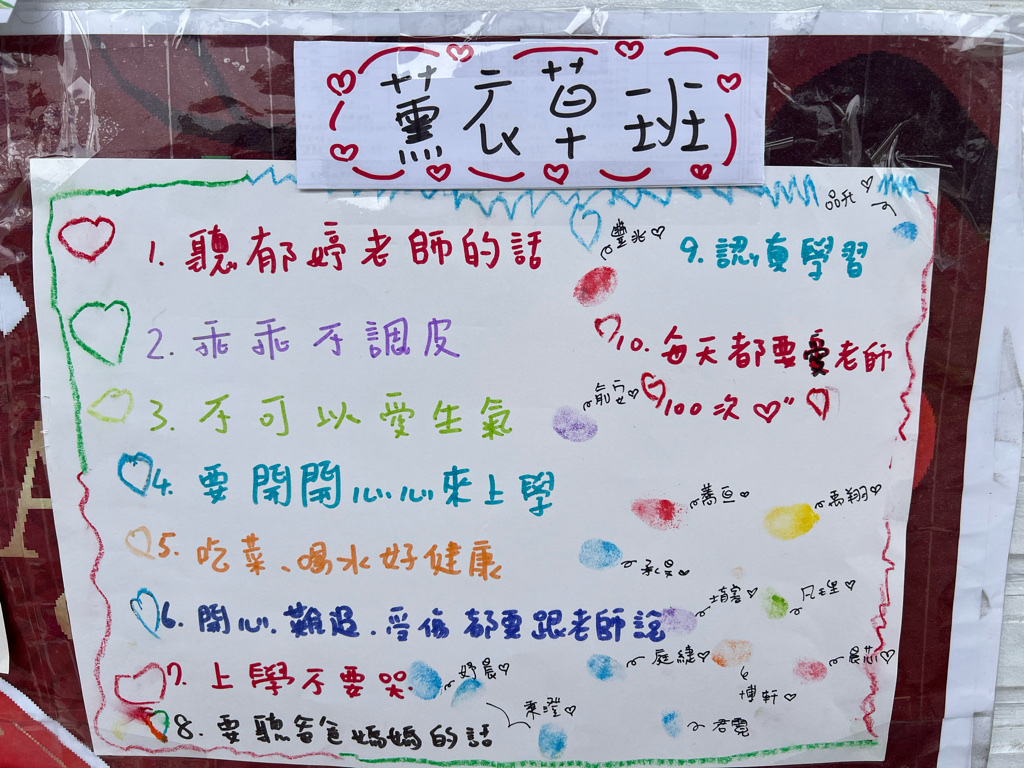 薰衣草班
1. 聽郁婷老師的話
2. 乖乖不調皮
3. 不可以愛生氣
4. 要開開心心來上學
5. 吃菜、喝水好健康
6. 開心.難過.受傷都要跟老師說
7. 上學不要哭.
8. 要聽爸爸媽媽的話
9. 認真學習
10. 每天都要愛老師
100次♡"
品升♡
豐兆♡
禹翔♡
承昊♡
庭緁♡
妤晨♡
博軒♡
晨芯♡
君霓